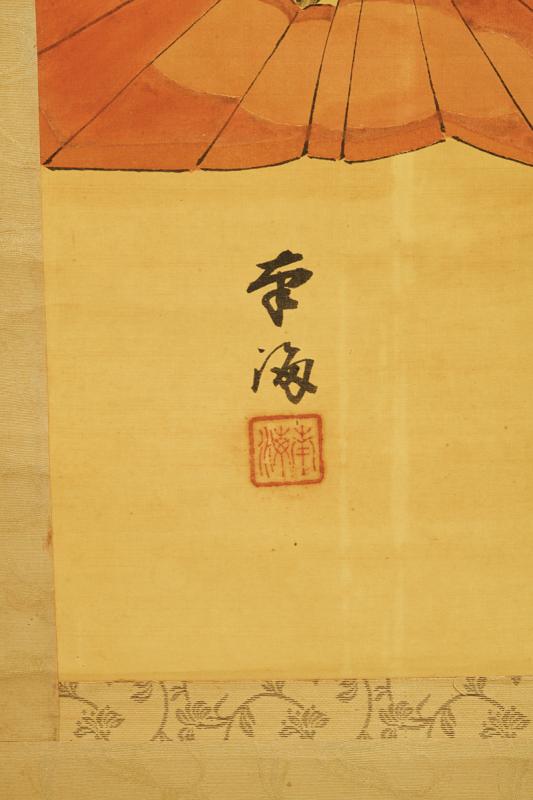 南
海
南海